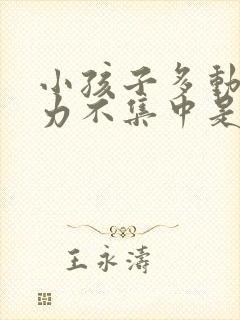 小孩子多動
力不集中是
王永濤